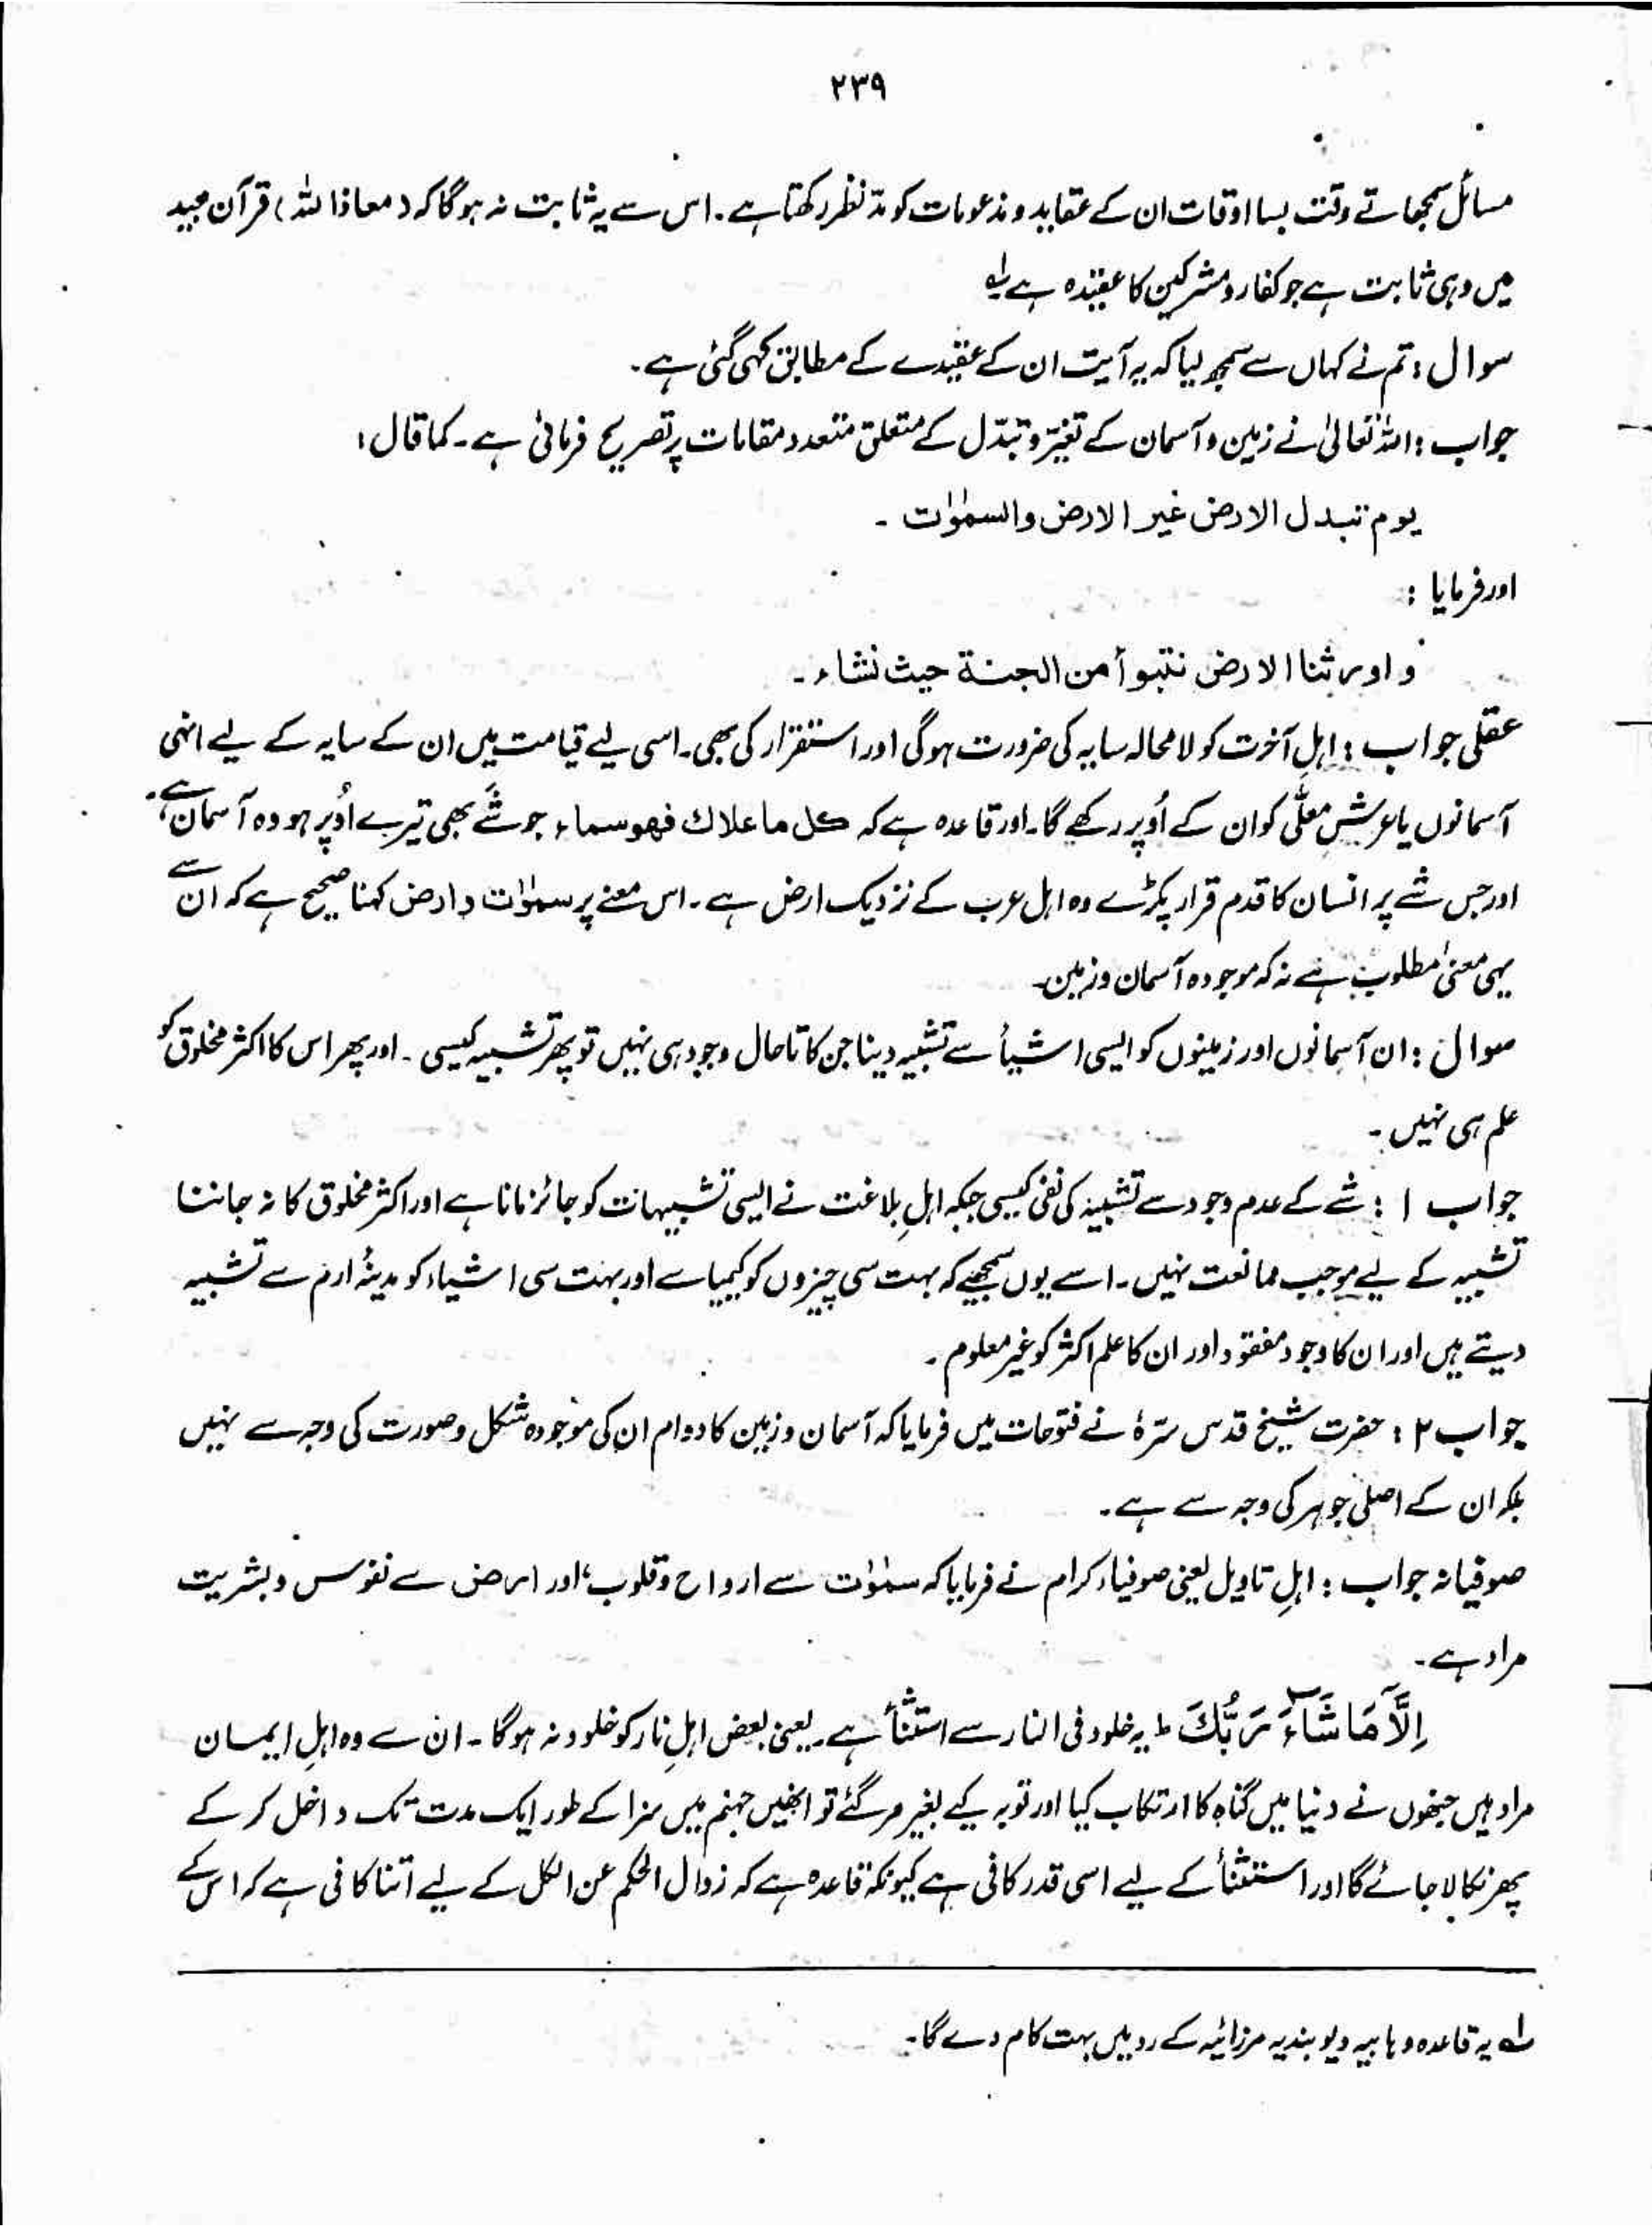 ۲۳۹
مسائل سمجھاتے وقت بسا اوقات ان کے عقاید و مذعومات کو مدّ نظر رکھتا ہے۔ اس سے یہ ثابت نہ ہوگا کہ (معاذ اللہ) قرآن مجید
میں وہی ثابت ہے جو کفار و مشرکین کا عقیدہ ہے لہ
سوال : تم نے کہاں سے سمجھ لیا کہ یہ آیت ان کے عقیدے کے مطابق کہی گئی ہے۔
جواب : اللہ تعالیٰ نے زمین و آسمان کے تغیّر و تبدّل کے متعلق متعدد مقامات پر تصریح فرمائی ہے۔ کما قال :
یوم تبدل الارض غیر الارض والسمٰوٰت ۔
اور فرمایا :
و اورثنا الارض نتبوأ من الجنة حیث نشاء ۔
عقلی جواب : اہلِ آخرت کو لا محالہ سایہ کی ضرورت ہوگی اور استقرار کی بھی۔ اسی لیے قیامت میں ان کے سایہ کے لیے انہی
آسمانوں یا عرشِ معلّٰی کو ان کے اُوپر رکھے گا۔ اور قاعدہ ہے کہ کل ما علاك فهو سماء جو شَے بھی تیرے اُوپر ہو وہ آسمان ہے،
اور جس شے پر انسان کا قدم قرار پکڑے وہ اہل عرب کے نزدیک ارض ہے۔ اس معنے پر سمٰوٰت و ارض کہنا صحیح ہے کہ ان سے
یہی معنیٰ مطلوب ہے نہ کہ موجودہ آسمان و زمین۔
سوال : ان آسمانوں اور زمینوں کو ایسی اشیأ سے تشبیہ دینا جن کا تا حال وجود ہی نہیں تو پھر تشبیہ کیسی۔ اور پھر اس کا اکثر مخلوق کو
علم ہی نہیں۔
جواب ۱ : شے کے عدم وجود سے تشبیہ کی نفی کیسی جبکہ اہلِ بلاغت نے ایسی تشبیہات کو جائز مانا ہے اور اکثر مخلوق کا نہ جاننا
تشبیہ کے لیے موجب ممانعت نہیں۔ اسے یوں سمجھیے کہ بہت سی چیزوں کو کیمیا سے اور بہت سی اشیاء کو مدینۂ ارم سے تشبیہ
دیتے ہیں اور ان کا وجود مفقود اور ان کا علم اکثر کو غیر معلوم۔
جواب ۲ : حضرت شیخ قدس سرّہٗ نے فتوحات میں فرمایا کہ آسمان و زمین کا دوام ان کی موجودہ شکل و صورت کی وجہ سے نہیں
بلکہ ان کے اصلی جوہر کی وجہ سے ہے۔
صوفیانہ جواب : اہلِ تاویل یعنی صوفیاء کرام نے فرمایا کہ سمٰوٰت سے ارواح و قلوب، اور ارض سے نفوس و بشریت
مراد ہے۔
اِلَّا مَا شَآءَ رَبُّكَ ط یہ خلود فی النار سے استثنأ ہے۔ یعنی بعض اہلِ نار کو خلود نہ ہوگا۔ ان سے وہ اہلِ ایمان
مراد ہیں جنھوں نے دنیا میں گناہ کا ارتکاب کیا اور توبہ کیے بغیر مر گئے تو انھیں جہنم میں سزا کے طور ایک مدت تک داخل کر کے
پھر نکالا جائے گا اور استثنأ کے لیے اسی قدر کافی ہے کیونکہ قاعدہ ہے کہ زوال الحکم عن الکل کے لیے اتنا کافی ہے کہ اس کے
لہ یہ قاعدہ وہابیہ دیوبندیہ مرزائیہ کے رد میں بہت کام دے گا۔